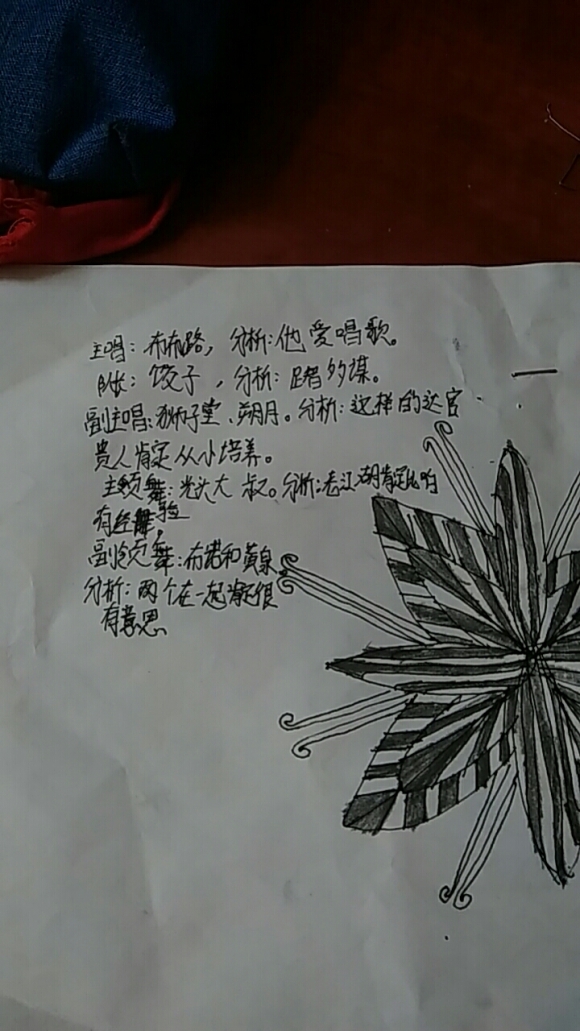 主唱：布布路，分析：他爱唱歌。
队长：饺子，分析：足智多谋。
副主唱：狮子堂、朔月。分析：这样的达官
贵人肯定从小培养。
主领舞：光头大叔。分析：老江湖肯定比的
有经验，
副领舞：布诺和黄泉
分析：两个在一起肯定很
有意思